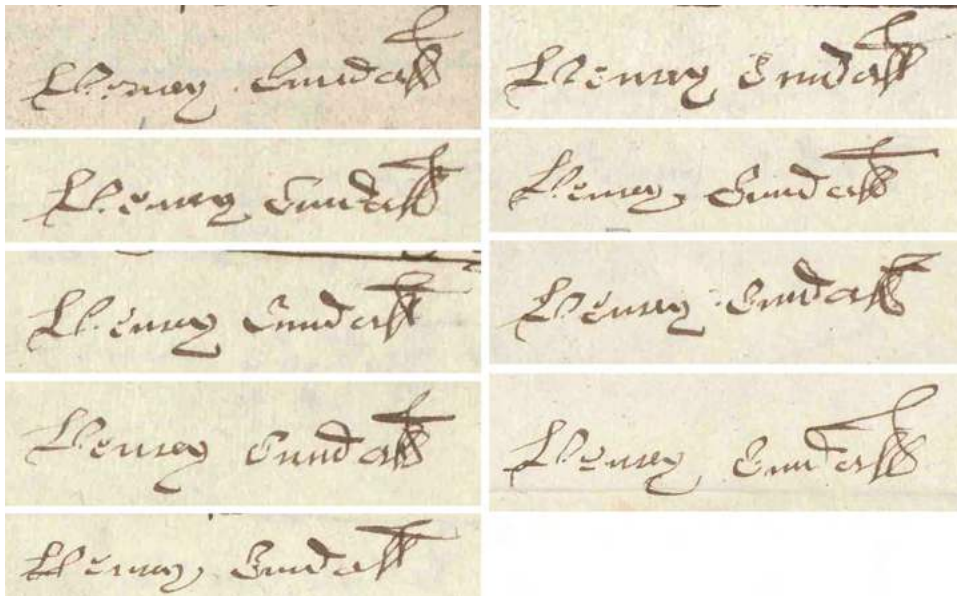 Henry Cundall
Henry Cundall
Henry Cundall
Henry Cundall
Henry Cundall
Henry Cundall
Henry Cundall
Henry Cundall
Henry Cundall